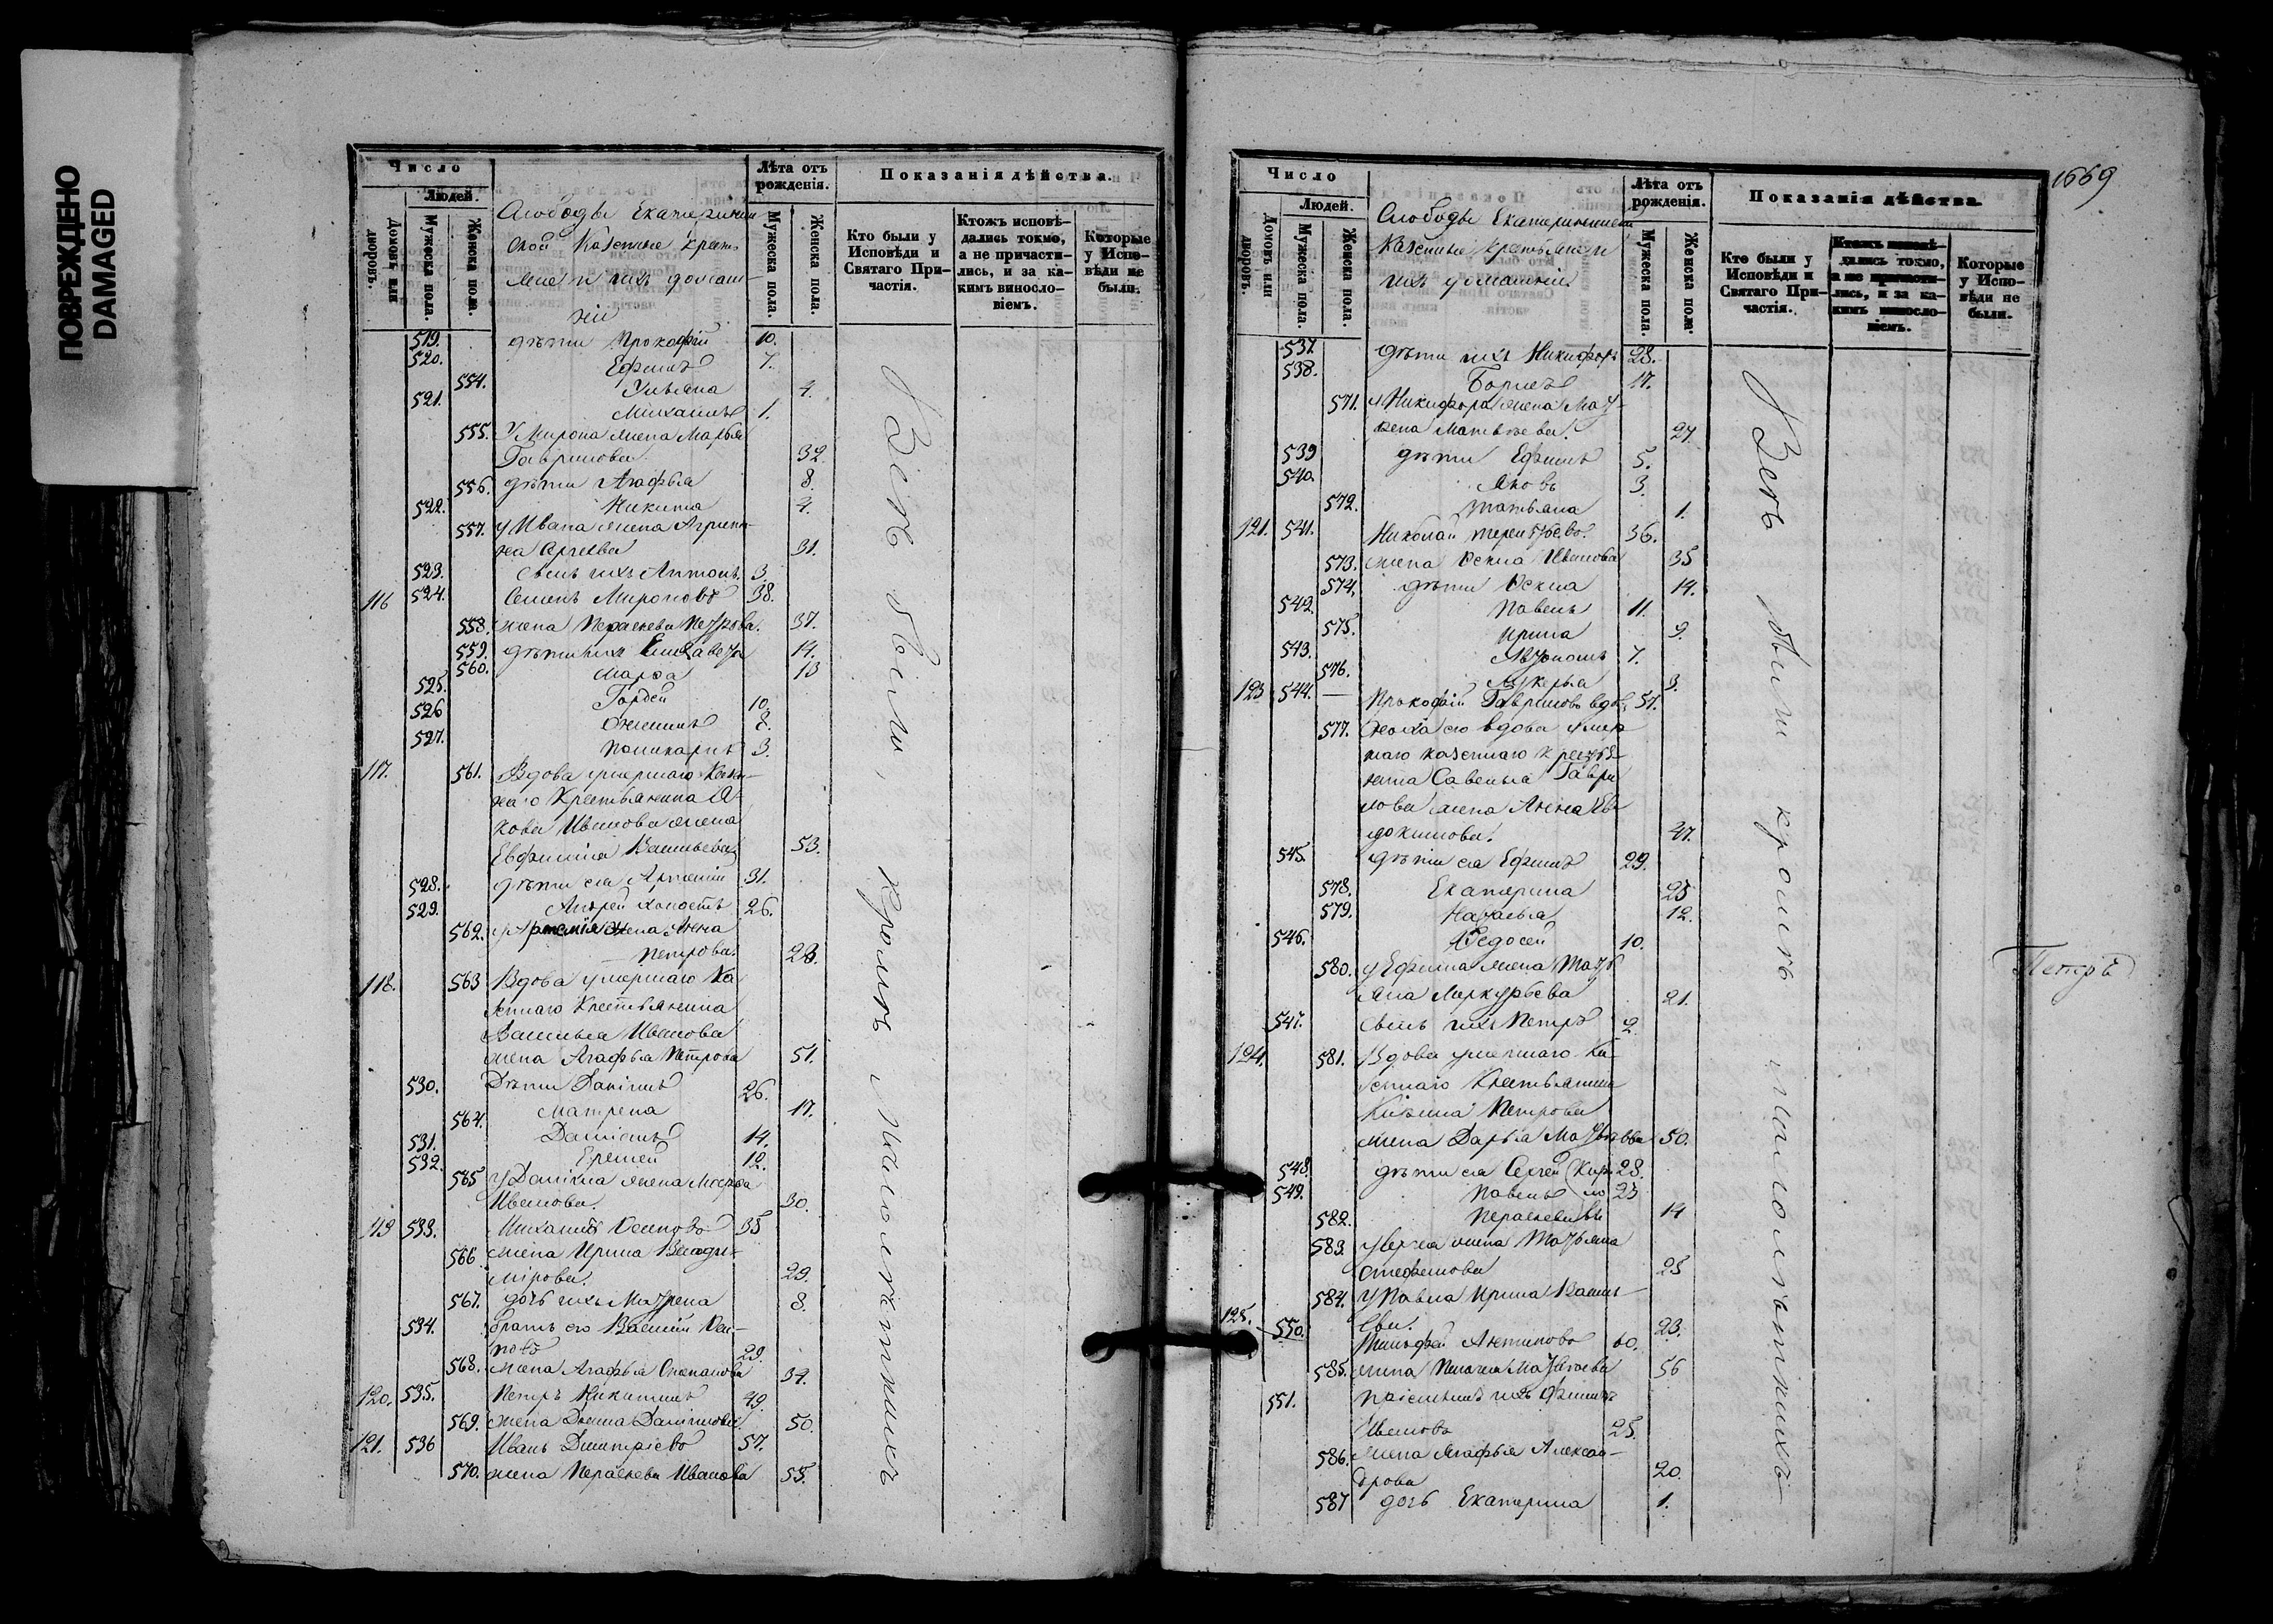 ПОВРЕЖДЕНО
DAMAGED
Число
Людей.
Домовъ или дворовъ.
Мужеска пола.
Женска пола.
Слободы Екатеринин
ской Казенные крестья
не и ихъ домаш
ніи
Лѣта отъ рожденія.
Мужеска пола.
Женска пола.
Показанія дѣйства.
Кто были у Исповѣди и Святаго Причастія.
Ктожъ исповѣдались токмо, а не причастились, и за какимъ винословіемъ.
Которые у Исповѣди не были.
519. дѣти Прокофій 10.
520. Ефимъ 7.
554. Ульяна 4.
521. Михаилъ 1.
555. У Мирона жена Марѳа
Гаврилова 32.
556. дѣти Агафья 8.
522. Никита 4.
557. у Ивана жена Агрипи
на Сергѣева 31.
523. сынъ ихъ Антонъ. 3.
116 524. Семенъ Мироновъ 38.
558. жена Параскева Петрова. 37.
559. дѣти ихъ Елизавета 14.
560. Марѳа 13
525. Гордей 10.
526 8.
527. Поликарпъ 3.
117. 561. Вдова умершаго Казен-
наго Крестьянина Я-
кова Иванова жена
Евфимія Васильева 53.
528. дѣти ея Арсеній 31.
529. Андрей холостъ 26.
562. жена Анна
Петрова. 28.
118. 563 Вдова умершаго Ка
зеннаго Крестьянина
Василья Иванова
жена Агафья Петрова 51.
530. Дѣти Даніилъ 26.
564. Матрена 17.
531. Даміанъ 14.
532. Еремей 12.
565 у Даніила жена Марѳа
Иванова. 30.
119 533. Михаилъ Осиповъ 35
566 жена Ирина Влади-
мірова. 29.
567. дочь ихъ Матрена 8.
534. братъ его Василій Оси-
повъ 29.
568. жена Агафья Степанова 34.
120. 535. Петръ Никитинъ 49.
569. жена Даніилова 50.
121. 536 Иванъ Димитріевъ 57.
570. жена Параскева Иванова 55.
Всѣ были, кромѣ малолѣтнихъ
1669
Число
Людей.
Домовъ или дворовъ.
Мужеска пола.
Женска пола.
Слободы Екатерининской
Казенные крестьяне и
ихъ домашніи
Лѣта отъ рожденія.
Мужеска пола.
Женска пола.
Показанія дѣйства.
Кто были у Исповѣди и Святаго Причастія.
Ктожъ исповѣдались токмо, а не причастились, и за какимъ винословіемъ.
Которые у Исповѣди не были.
537. дѣти ихъ Никифоръ 28.
538. Борисъ 17.
571. у Никифора жена Мат-
рена Матвѣева. 27.
539 дѣти Ефимъ 5.
540. Яковъ 3.
572. Татьяна 1.
121. 541. Николай Терентьевъ. 36.
573. жена Иванова 35
574. дѣти 14.
542. Павелъ 11.
575. Ирина 9.
543. Автономъ 7.
576. Лукерья 3.
123 544. Прокофій Гавриловъ вдов. 51.
577. его вдова умер
шаго казеннаго крестья-
нина Савелья Гаври
лова жена Анна Ев
докимова. 47.
545. дѣти ея Ефимъ 29.
578. Екатерина 23
579. Наталья 12.
546. Ѳедосей 10.
580. у Ефима жена Тать
яна Меркурьева 21.
547. сынъ ихъ Петръ 2
Петръ
124. 581. Вдова умершаго Ка-
зеннаго Крестьянина
Козьмы Петрова
жена Дарья Матвѣева 50.
548. дѣти ея Сергей 28.
549. Павелъ 23
582. Параскева 14
583. у Сергея жена Татьяна
Стефанова 25
584. у Павла Ирина Василь-
ева. 23.
125. 550. Тимофей Антиповъ 60.
585. жена Пелагея Матвѣева 56
551. пріемышъ ихъ
Ивановъ 25.
586. жена Агафья Алексан-
дрова 20.
587 дочь Екатерина 1.
Всѣ были кромѣ малолѣтнихъ